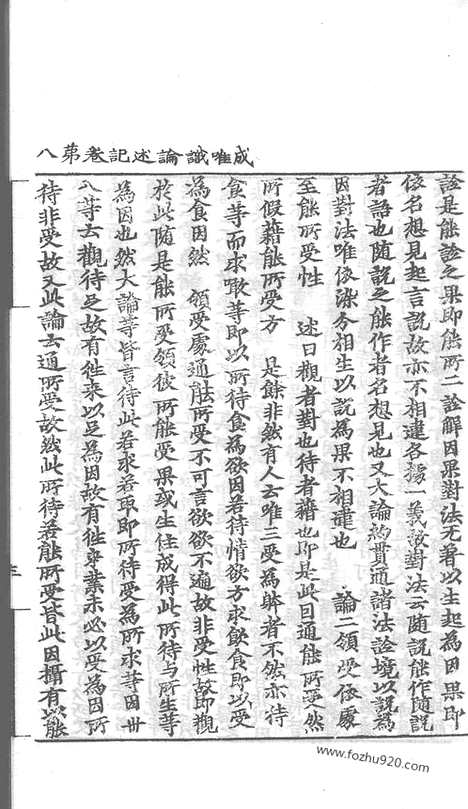 成唯識論述記卷第八
詮是能詮之果即能所二詮解因果對法无著以生起為因果即
依名想見起言說故亦不相違各據一義故對法云隨說能作隨說
者語也隨說之能作者名想見也又大論約貫通諸法詮境以說為
因對法唯依染分相生以說為果不相違也 論二領受依處
至能所受性 述曰觀者對也待者藉也即是此目通能所受然
所假藉能所受方 是餘非然有人云唯三受為躰者不然亦待
食等而求噉等即以所待食為欲因若待情欲方求飲食即以受
為食因然 領受處通能所受不可言欲欲不遍故非受性故即觀
於此隨是能所受領彼所能受果或生住成得此所待与所生等
為因也然大論等皆言待此若求若取即所待受為所求等因卅
八等云觀待足故有徃来以足為因故有徃来業亦必以受為因所
待非受故又此論云通所受故然此所待若能所受皆此因攝有以能
www.fozhu920.com